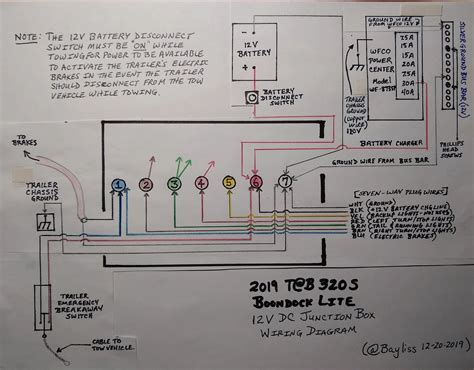 NOTE: THE 12V BATTERY DISCONNECT
SWITCH MUST BE "ON" WHILE
TOWING FOR POWER TO BE AVAILABLE
TO ACTIVATE THE TRAILER'S ELECTRIC
BRAKES IN THE EVENT THE TRAILER
SHOULD DISCONNECT FROM THE TOW
VEHICLE WHILE TOWING.
12V
BATTERY
BATTERY
DISCONNECT
SWITCH
GROUND WIRE FROM
WFCO
WFCO
POWER
CENTER
Model
15A
25A
15A
15A
30A
40A
SILVER GROUND BUS BAR (12V)
TRAILER
CHASSIS
GROUND
(copper wire)
120V
PHILLIPS
HEAD
SCREWS
BATTERY CHARGER
GROUND WIRE FROM BUS BAR
TO
BRAKES
TRAILER
CHASSIS
GROUND
1
2
3
4
5
6
7
[SEVEN-WAY PLUG WIRES]
WHT (GROUND)
BLK (+12V BATTERY CHG LINE)
YEL (BACKUP LIGHTS-NOT USED)
RED (LEFT TURN/STOP LIGHTS)
BRN (TAIL & RUNNING LIGHTS)
GRN (RIGHT TURN/STOP LIGHTS)
BLU (ELECTRIC BRAKES)
TRAILER
EMERGENCY
BREAKAWAY
SWITCH
CABLE TO
TOW VEHICLE.
2019 T@B 320S
BOONDOCK LITE
12V DC JUNCTION BOX
WIRING DIAGRAM
(@Bayliss 12-20-2019)